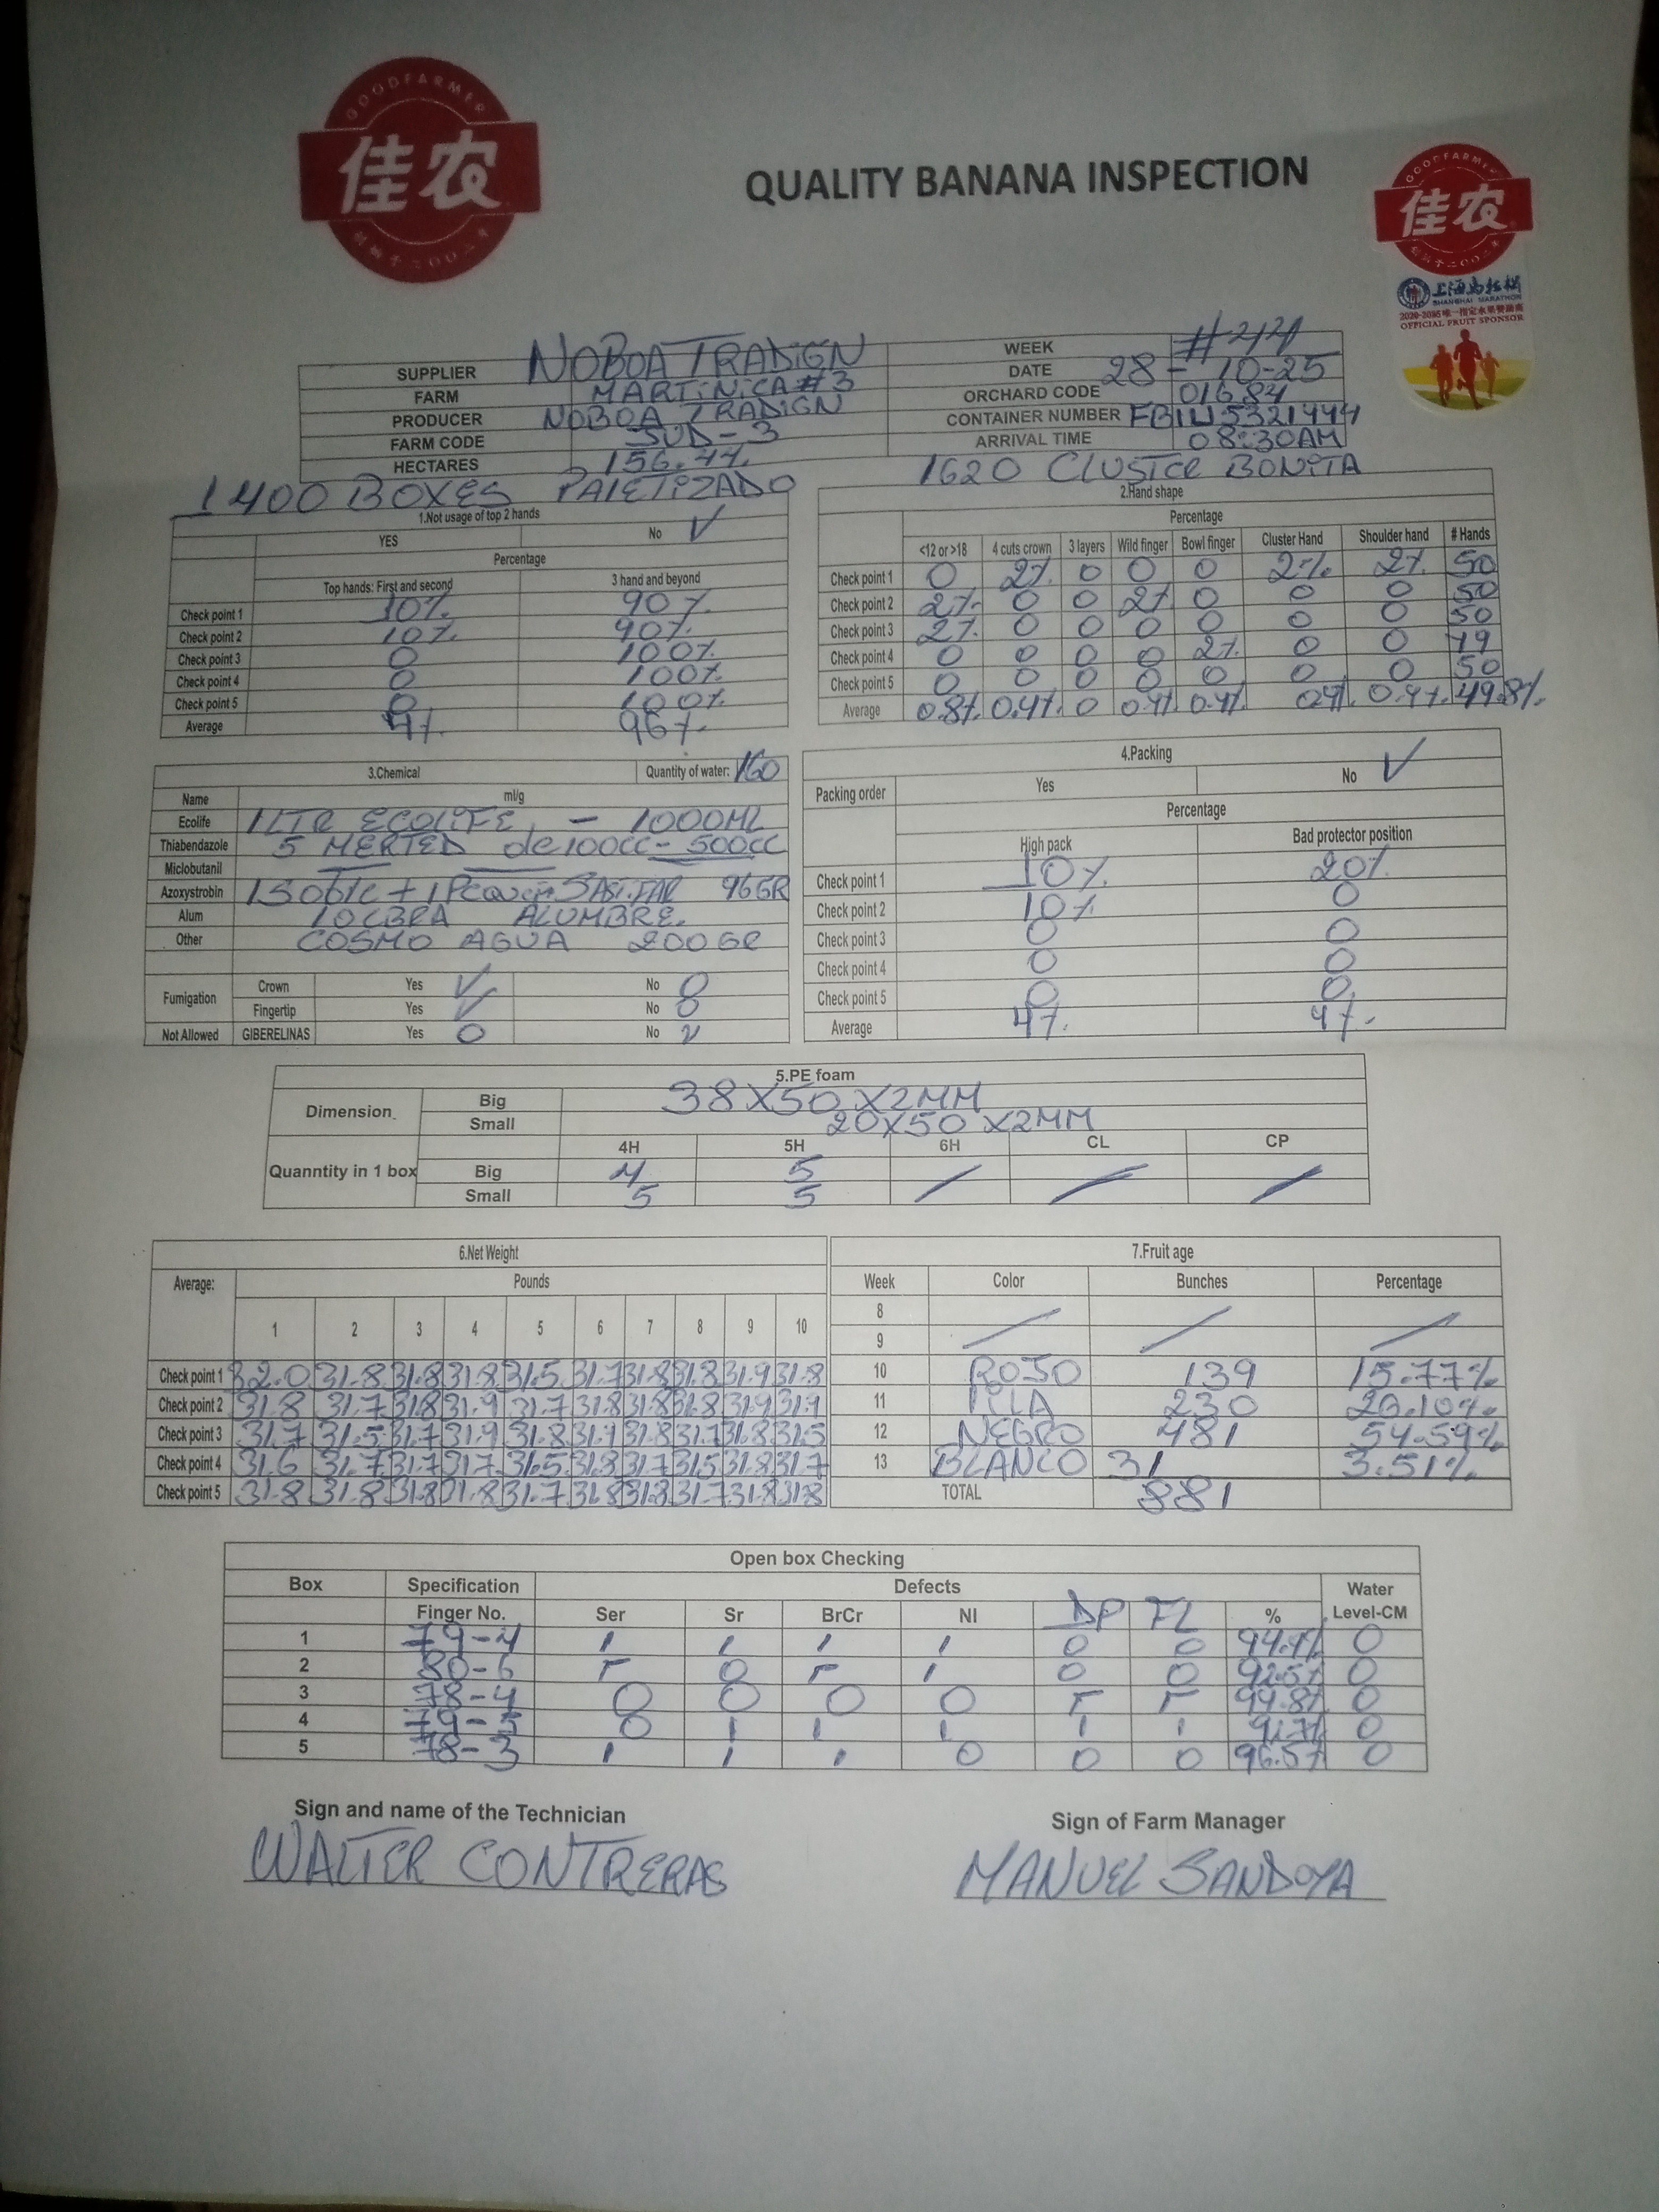 GOODFARMER
佳农
QUALITY BANANA INSPECTION
GOODFARMER
佳农
上海马拉松
SHANGHAI MARATHON
OFFICIAL FRUIT SPONSOR
SUPPLIER NOBOA TRADIGN WEEK #44
FARM MARTINICA #3 DATE 28-10-25
PRODUCER NOBOA TRADIGN ORCHARD CODE 01684
FARM CODE SUD-3 CONTAINER NUMBER FBIU5321444
HECTARES 156.44 ARRIVAL TIME 08:30AM
1400 BOXES PALETIZADO 1620 CLUSTER BONITA
1.Not usage of top 2 hands
YES No ✓
Percentage
Top hands: First and second 3 hand and beyond
Check point 1 10% 90%
Check point 2 10% 90%
Check point 3 0 100%
Check point 4 0 100%
Check point 5 0 100%
Average 4% 96%
2.Hand shape
Percentage
<12 or >18 4 cuts crown 3 layers Wild finger Bowl finger Cluster Hand Shoulder hand # Hands
Check point 1 0 2% 0 0 0 2% 2% 50
Check point 2 2% 0 0 2% 0 0 0 50
Check point 3 2% 0 0 0 0 0 0 50
Check point 4 0 0 0 0 2% 0 0 49
Check point 5 0 0 0 0 0 0 0 50
Average 0.8% 0.4% 0 0.4% 0.4% 0.4% 0.4% 49.8%
3.Chemical Quantity of water: 160
Name ml/g
Ecolife 1 LTR ECOLIFE - 1000ML
Thiabendazole 5 MERTED de 100CC - 500CC
Miclobutanil
Azoxystrobin 96GR
Alum 10 LBRA ALUMBRE.
Other COSMO AGUA 200 GR
Fumigation Crown Yes ✓ No 0
Fingertip Yes ✓ No 0
Not Allowed GIBERELINAS Yes 0 No ✓
4.Packing
Packing order Yes No ✓
Percentage
High pack Bad protector position
Check point 1 10% 20%
Check point 2 10% 0
Check point 3 0 0
Check point 4 0 0
Check point 5 0 0
Average 4% 4%
5.PE foam
Dimension Big 38X50X2MM
Small 20X50X2MM
4H 5H 6H CL CP
Quanntity in 1 box Big 4 5
Small 5 5
6.Net Weight
Average: Pounds
1 2 3 4 5 6 7 8 9 10
Check point 1 32.0 31.8 31.8 31.8 31.5 31.7 31.8 31.8 31.9 31.8
Check point 2 31.8 31.7 31.8 31.9 31.7 31.8 31.8 31.8 31.9 31.9
Check point 3 31.7 31.5 31.7 31.9 31.8 31.9 31.8 31.7 31.8 31.5
Check point 4 31.6 31.7 31.7 31.7 31.5 31.8 31.7 31.5 31.8 31.7
Check point 5 31.8 31.8 31.8 31.8 31.7 31.8 31.8 31.7 31.8 31.8
7.Fruit age
Week Color Bunches Percentage
8
9
10 ROJO 139 15.77%
11 LILA 230 26.10%
12 NEGRO 481 54.59%
13 BLANCO 31 3.51%
TOTAL 881
Open box Checking
Box Specification Defects Water
Finger No. Ser Sr BrCr NI DP FL % Level-CM
1 79-4 1 1 1 1 0 0 94.9% 0
2 80-6 0 1 0 0 92.5% 0
3 78-4 0 0 0 0 94.8% 0
4 79-5 0 1 1 1 1 1 0
5 78-3 1 1 1 0 0 0 96.5% 0
Sign and name of the Technician Sign of Farm Manager
WALTER CONTRERAS MANUEL SANDOYA